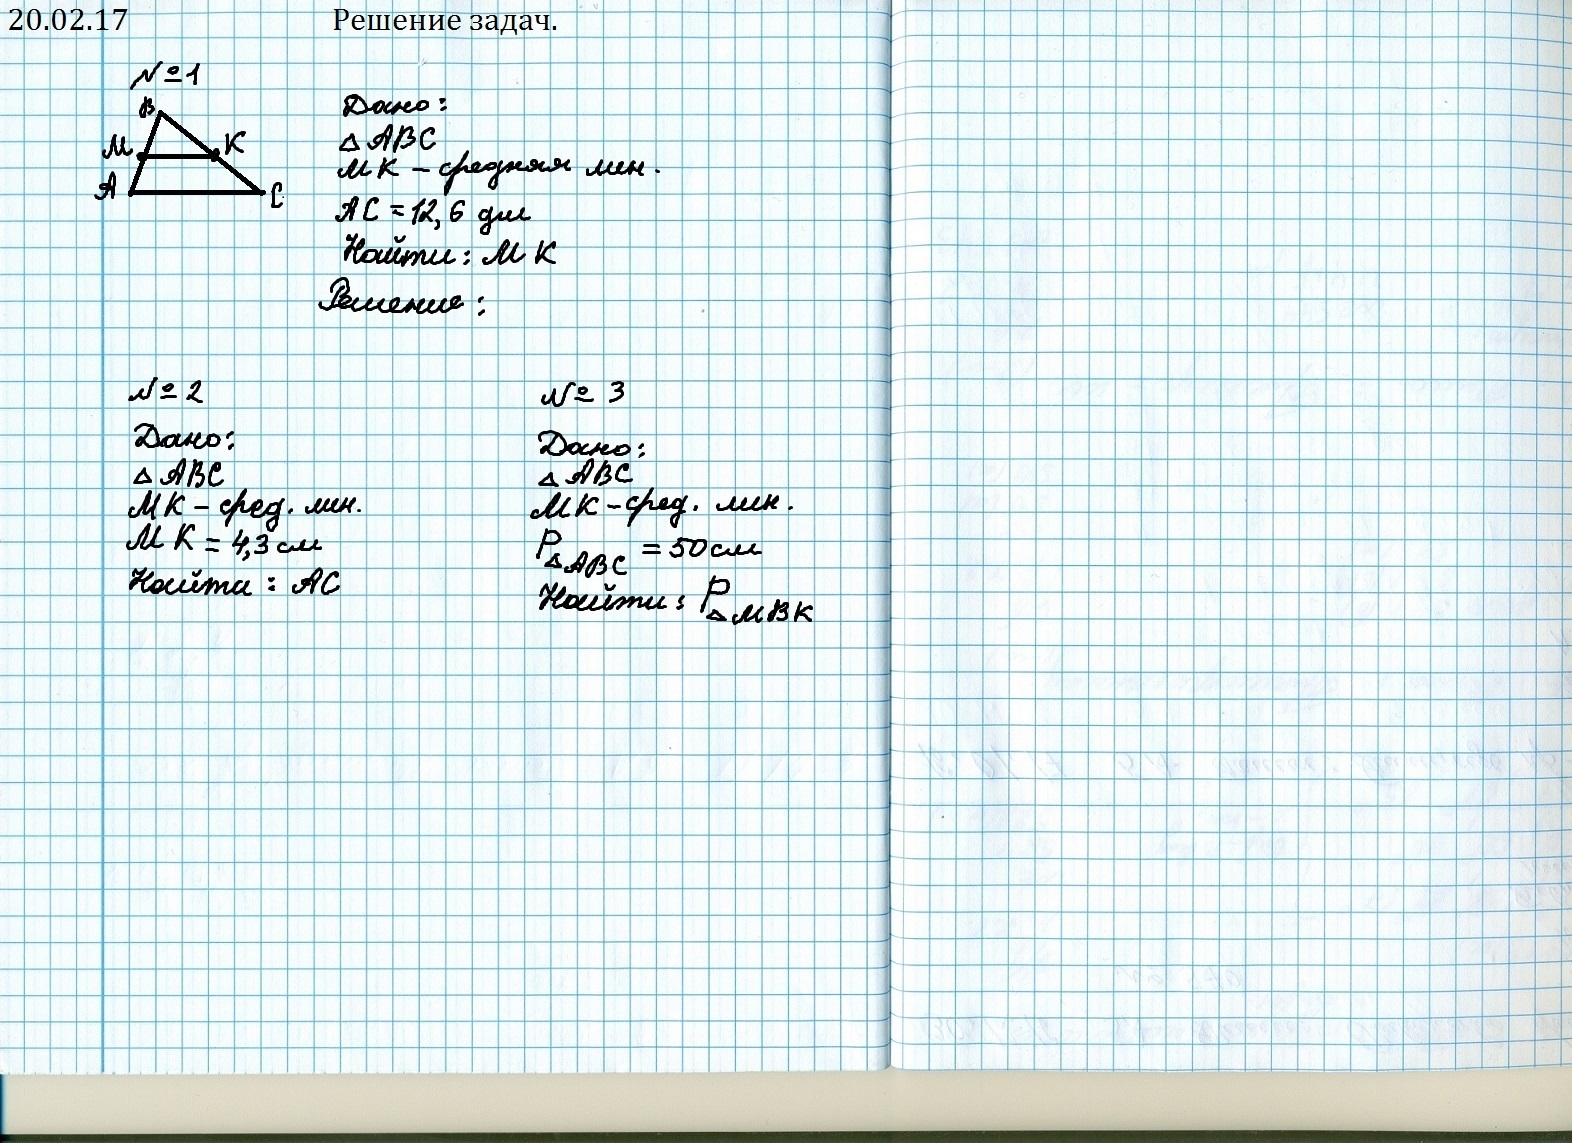 20.02.17 Решение задач.
№1
B
M K
A C
Дано:
△ABC
MK – средняя лин.
AC = 12,6 дм
Найти: MK
Решение:
№ 2
Дано:
△ABC
MK – сред. лин.
MK = 4,3 см
Найти: AC
№ 3
Дано:
△ABC
MK – сред. лин.
P△ABC = 50 см
Найти: P△MBK